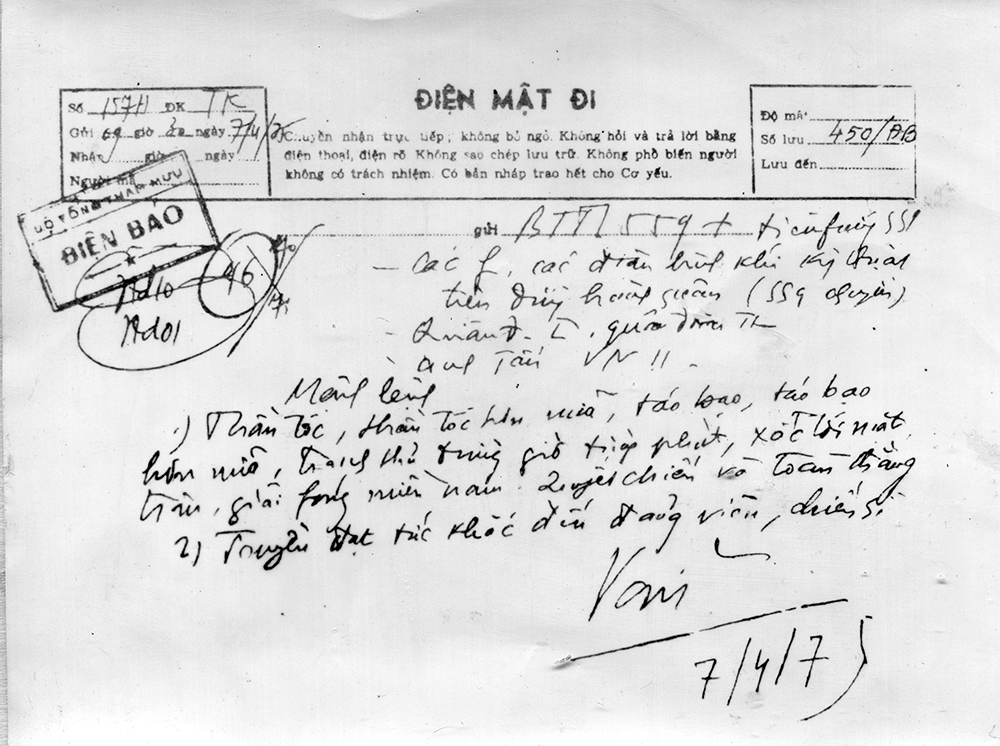 ĐIỆN MẬT ĐI
Số 157H ĐK TK
Gửi 09 giờ ngày 7/4/75
Nhận giờ ngày
Người mã
Chuyền nhận trực tiếp, không bỏ ngỏ. Không hỏi và trả lời bằng
điện thoại, điện rõ. Không sao chép lưu trữ. Không phổ biến người
không có trách nhiệm. Có bản nháp trao hết cho Cơ yếu.
Độ mật
Số lưu 450/ĐB
Lưu đến
BỘ TỔNG THAM MƯU
ĐIỆN BÁO
46
gửi BTTL 559 + tiền fương 559
- các f, các đơn binh khí kỹ thuật
trên đường hành quân (559 chuyển)
- Quân đ. I, quân đoàn
- anh Tấn VN II
Mệnh lệnh
1) Thần tốc, thần tốc hơn nữa, táo bạo, táo bạo
hơn nữa, tranh thủ từng giờ từng phút, xốc tới mặt
trận, giải fóng miền nam. Quyết chiến và toàn thắng
2) Truyền đạt tức khắc đến đảng viên, chiến sĩ
Văn
7/4/75